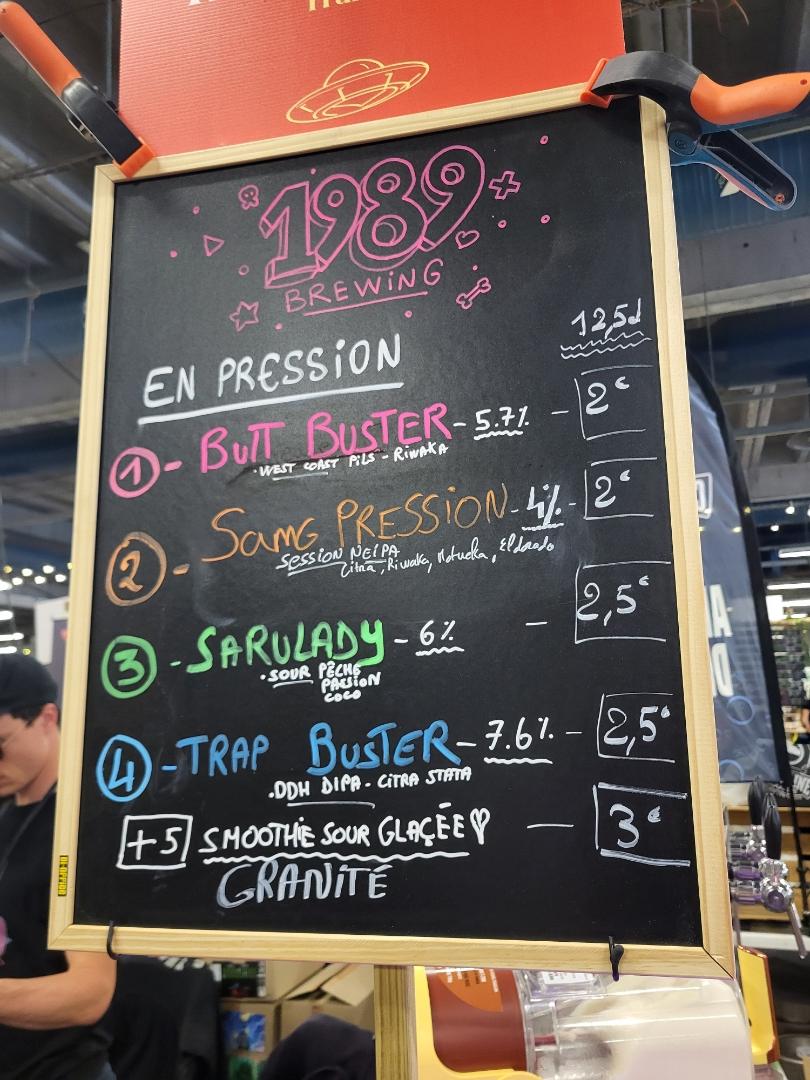 1989
BREWING
12,5cl
EN PRESSION
1 - BUTT BUSTER - 5.7% - 2€
• WEST COAST PILS - RIWAKA
2 - Sang PRESSION - 4% - 2€
SESSION NEIPA
Citra, Riwaka, Motueka, Eldorado
3 - SARULADY - 6% - 2,5€
• SOUR PÊCHE
PASSION
COCO
4 - TRAP BUSTER - 7.6% - 2,5€
• DDH DIPA - CITRA STATA
+5 SMOOTHIE SOUR GLAÇÉE ♡ - 3€
GRANITÉ